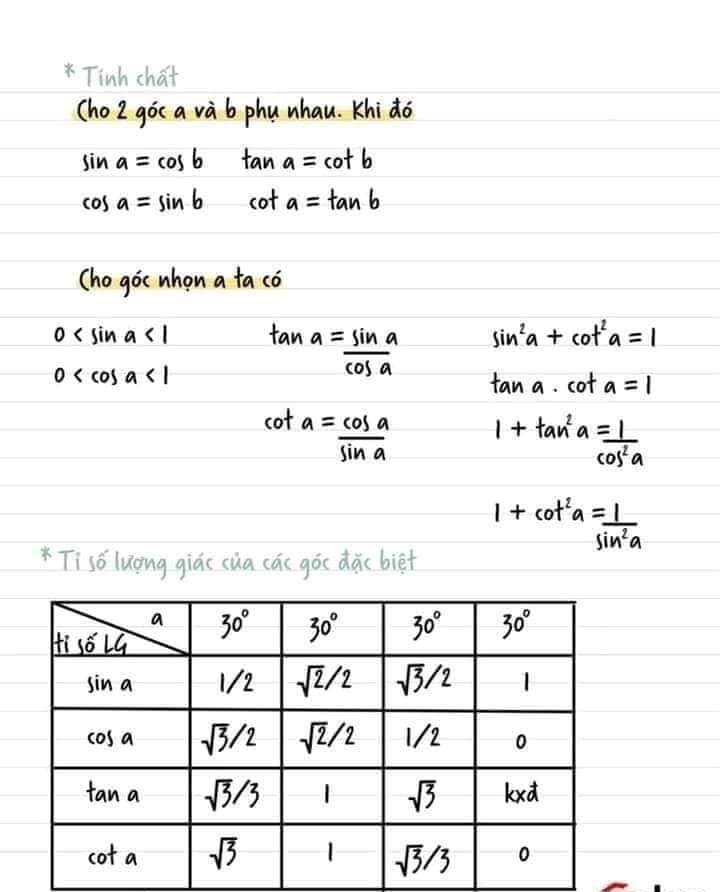 * Tính chất
Cho 2 góc a và b phụ nhau. Khi đó
sin a = cos b tan a = cot b
cos a = sin b cot a = tan b
Cho góc nhọn a ta có
0 < sin a < 1
0 < cos a < 1
tan a = sin a
cos a
cot a = cos a
sin a
sin²a + cot²a = 1
tan a . cot a = 1
1 + tan²a = 1
cos²a
1 + cot²a = 1
sin²a
* Tỉ số lượng giác của các góc đặc biệt
a
tỉ số LG
30° 30° 30° 30°
sin a 1/2 √2/2 √3/2 1
cos a √3/2 √2/2 1/2 0
tan a √3/3 1 √3 kxđ
cot a √3 1 √3/3 0